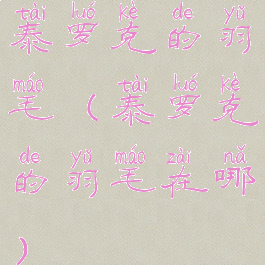 tài luó kè de yǔ
泰罗克的羽
máo tài luó kè
毛（泰罗克
de yǔ máo zài nǎ
的羽毛在哪
）